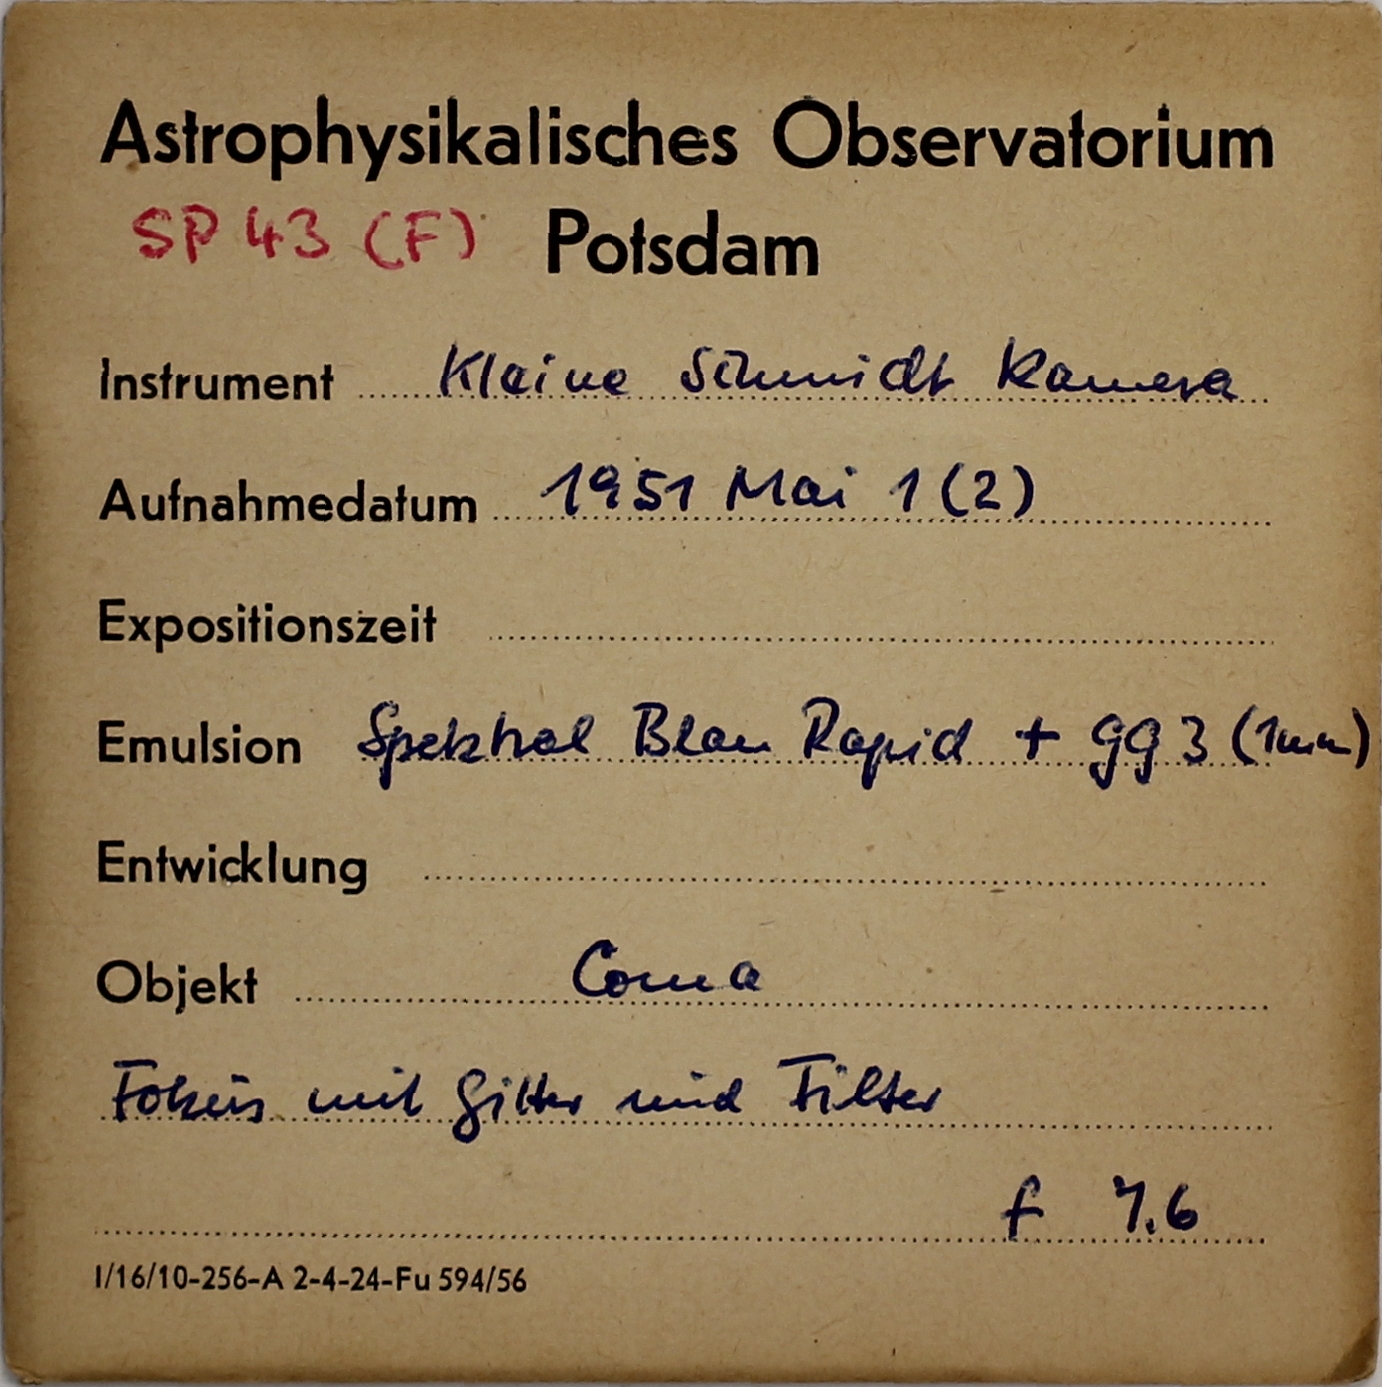 Astrophysikalisches Observatorium
SP 43 (F) Potsdam
Instrument Kleine Schmidt Kamera
Aufnahmedatum 1951 Mai 1 (2)
Expositionszeit
Emulsion Spektral Blau Rapid + GG 3 (1mm)
Entwicklung
Objekt Coma
Fokus mit Gitter und Filter
f 7.6
I/16/10-256-A 2-4-24-Fu 594/56